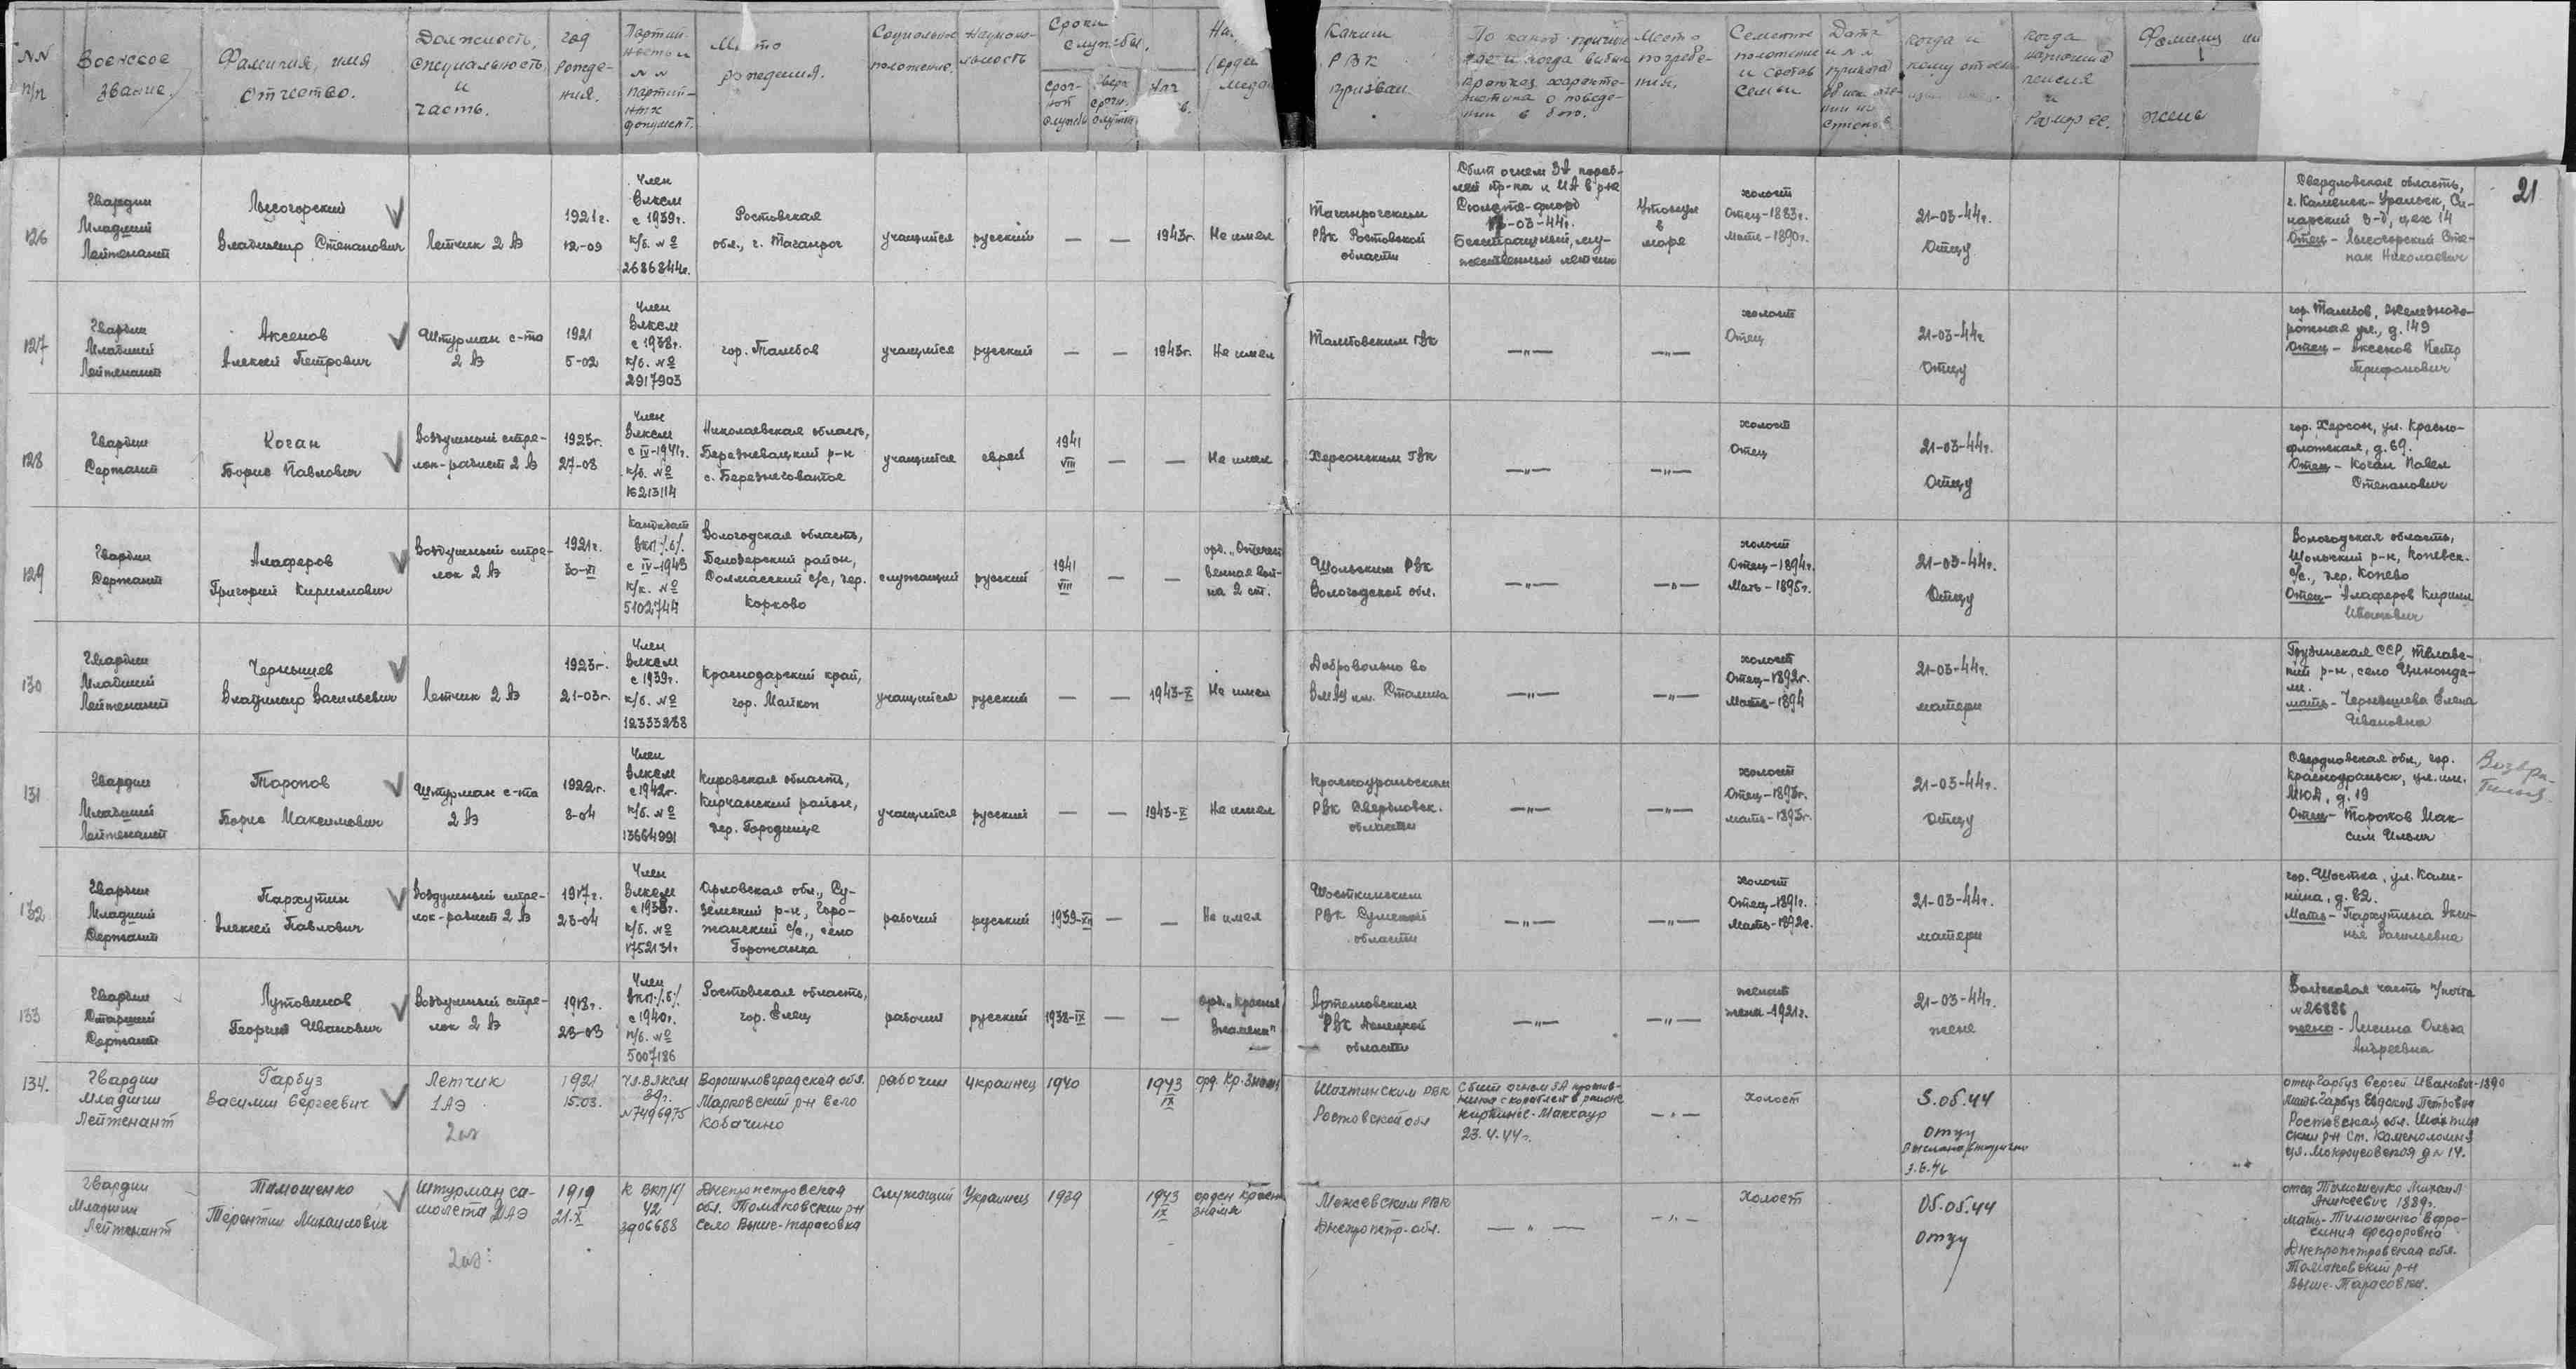 21
NN п/п
Воинское звание.
Фамилия, имя отчество.
Должность, специальность и часть.
год рождения.
Партийность и NN партийных документ.
Место рождения.
Социальное положение.
Национальность
Сроки службы.
сроч-ной службы
сверх срочн. службы
Каким РВК призван
По какой причине где и когда выбыл краткая характеристика о поведении в бою.
Место погребения.
Семейное положение и состав семьи
Дата и NN приказа об исключении из списков
когда и кому
когда назначена пенсия и размер ее.
жены
126
Гвардии Младший Лейтенант
Лысогорский Владимир Степанович
Летчик 2 АЭ
1921г. 12-09
Член ВЛКСМ с 1939г. к/б. № 2686844г.
Ростовская обл., г. Таганрог
учащийся
русский
— —
1943г.
Не имел
Таганрогским РВК Ростовской области
Сбит огнем ЗА кораблей пр-ка и ИА в р-не
-03-44г.
Бесстрашный, мужественный летчик
Утонул в море
холост Отец-1883г. Мать-1890г.
21-03-44г. Отцу
Свердловская область, г. Каменск-Уральск, Синарский з-д, цех 14
Отец - Лысогорский Степан Николаевич
127
Гвардии Младший Лейтенант
Аксенов Алексей Петрович
Штурман с-та 2 АЭ
1921 5-02
Член ВЛКСМ с 1938г. к/б. № 2917903
гор. Тамбов
учащийся
русский
— —
1943г.
Не имел
Тамбовским ГВК
—"—
—"—
холост Отец
21-03-44г Отцу
гор. Тамбов, Железнодорожная ул., д. 149
Отец - Аксенов Петр Трифонович
128
Гвардии Сержант
Коган Борис Павлович
Воздушный стрелок-радист 2 АЭ
1923г. 27-08
Член ВЛКСМ с IV-1941г. к/б. № 16213114
Николаевская область, Березневацкий р-н с. Березнеговатое
учащийся
еврей
1941 VIII
— —
Не имел
Херсонским ГВК
—"—
—"—
холост Отец
21-03-44г. Отцу
гор. Херсон, ул. Краснофлотская, д. 69.
Отец - Коган Павел Степанович
129
Гвардии Сержант
Алаферов Григорий Кириллович
Воздушный стрелок 2 АЭ
1921г. 30-XI
Кандидат ВКП/б/ с IV-1943 к/к. № 5102744
Вологодская область, Белозерский район, с/с, дер. Корково
служащий
русский
1941 VIII
— —
орд. „Отечественная война 2 ст.
Шольским РВК Вологодской обл.
—"—
—"—
холост Отец-1894г. Мать-1895г.
21-03-44г. Отцу
Вологодская область, Шольский р-н, Коневск. с/с., дер. Конево
Отец - Алаферов Кирилл Иванович
130
Гвардии Младший Лейтенант
Чернышев Владимир Васильевич
Летчик 2 АЭ
1923г. 21-03г.
Член ВЛКСМ с 1939г. к/б. № 12333288
Краснодарский край, гор. Майкоп
учащийся
русский
— —
1943-X
Не имел
Добровольно во ВМАУ им. Сталина
—"—
—"—
холост Отец-1892г. Мать-1894
21-03-44г. матери
Грузинская ССР, Телавский р-н, село Цинондали.
мать - Чернышева Елена Ивановна
131
Гвардии Младший Лейтенант
Торопов Борис Максимович
Штурман с-та 2 АЭ
1922г. 8-04
Член ВЛКСМ с 1942г. к/б. № 13664991
Кировская область, район, дер. Городище
учащийся
русский
— —
1943-X
Не имел
Красноуральским РВК Свердловск. области
—"—
—"—
холост Отец-1893г. мать-1893г.
21-03-44г. отцу
Свердловская обл., гор. Красноуральск, ул. им. МЮД, д. 19
Отец - Торопов Максим Ильич
132
Гвардии Младший Сержант
Пархутин Алексей Павлович
Воздушный стрелок-радист 2 АЭ
1917г. 23-04
Член ВЛКСМ с 1938г. к/б. № 1752131г
Орловская обл., Суземский р-н, Горожанский с/с., село Горожанка
рабочий
русский
1939-XII
— —
Не имел
Шосткинским РВК Сумской области
—"—
—"—
холост Отец-1891г. Мать-1892г.
21-03-44г. матери
гор. Шостка, ул. Калинина, д. 82.
Мать - Пархутина Аксинья Васильевна
133
Гвардии Старший Сержант
Лутовинов Георгий Иванович
Воздушный стрелок 2 АЭ
1918г. 23-03
Член ВКП/б/ с 1940г. п/б. № 5007186
Ростовская область, гор. Елец
рабочий
русский
1938-IX
— —
орд. „Красное Знамени"
Артемовским РВК Донецкой области
—"—
—"—
женат жена-1921г.
21-03-44г. жене
Войсковая часть п/почта №26886
жена - Лисина Ольга Андреевна
134.
Гвардии Младший Лейтенант
Гарбуз Василий Сергеевич
Летчик 1 АЭ
2аэ
1921 15.03.
Чл. ВЛКСМ 39г. N7496975
Ворошиловградская обл. Марковский р-н село Кобачино
рабочий
украинец
1940
1943 IX
орд. Кр. Знам
Шахтинским РВК Ростовской обл
Сбит огнем ЗА противника с кораблей в районе Киркинес-Маккаур 23.4.44г.
—"—
холост
5.05.44 отцу
отец Гарбуз Сергей Иванович-1890
мать-Гарбуз Евдокия Петровна
Ростовская обл. Шахтинский р-н ст. Каменоломня
ул. Мокроусовская д N 14.
Гвардии Младший Лейтенант
Тимошенко Терентий Михайлович
Штурман самолета АЭ
2аэ
1919 21.X
К ВКП/б/ 42 3906688
Днепропетровская обл. Томаковский р-н Село Выше-Тарасовка
Служащий
Украинец
1939
1943 IX
орден Красн знамя
Межевским РВК Днепропетр-обл.
—"—
—"—
Холост
05.05.44 отцу
отец Тимошенко Михаил 1889г.
мать-Тимошенко Ефросиния Федоровна
Днепропетровская обл.
Томаковский р-н
Выше-Тарасовка.